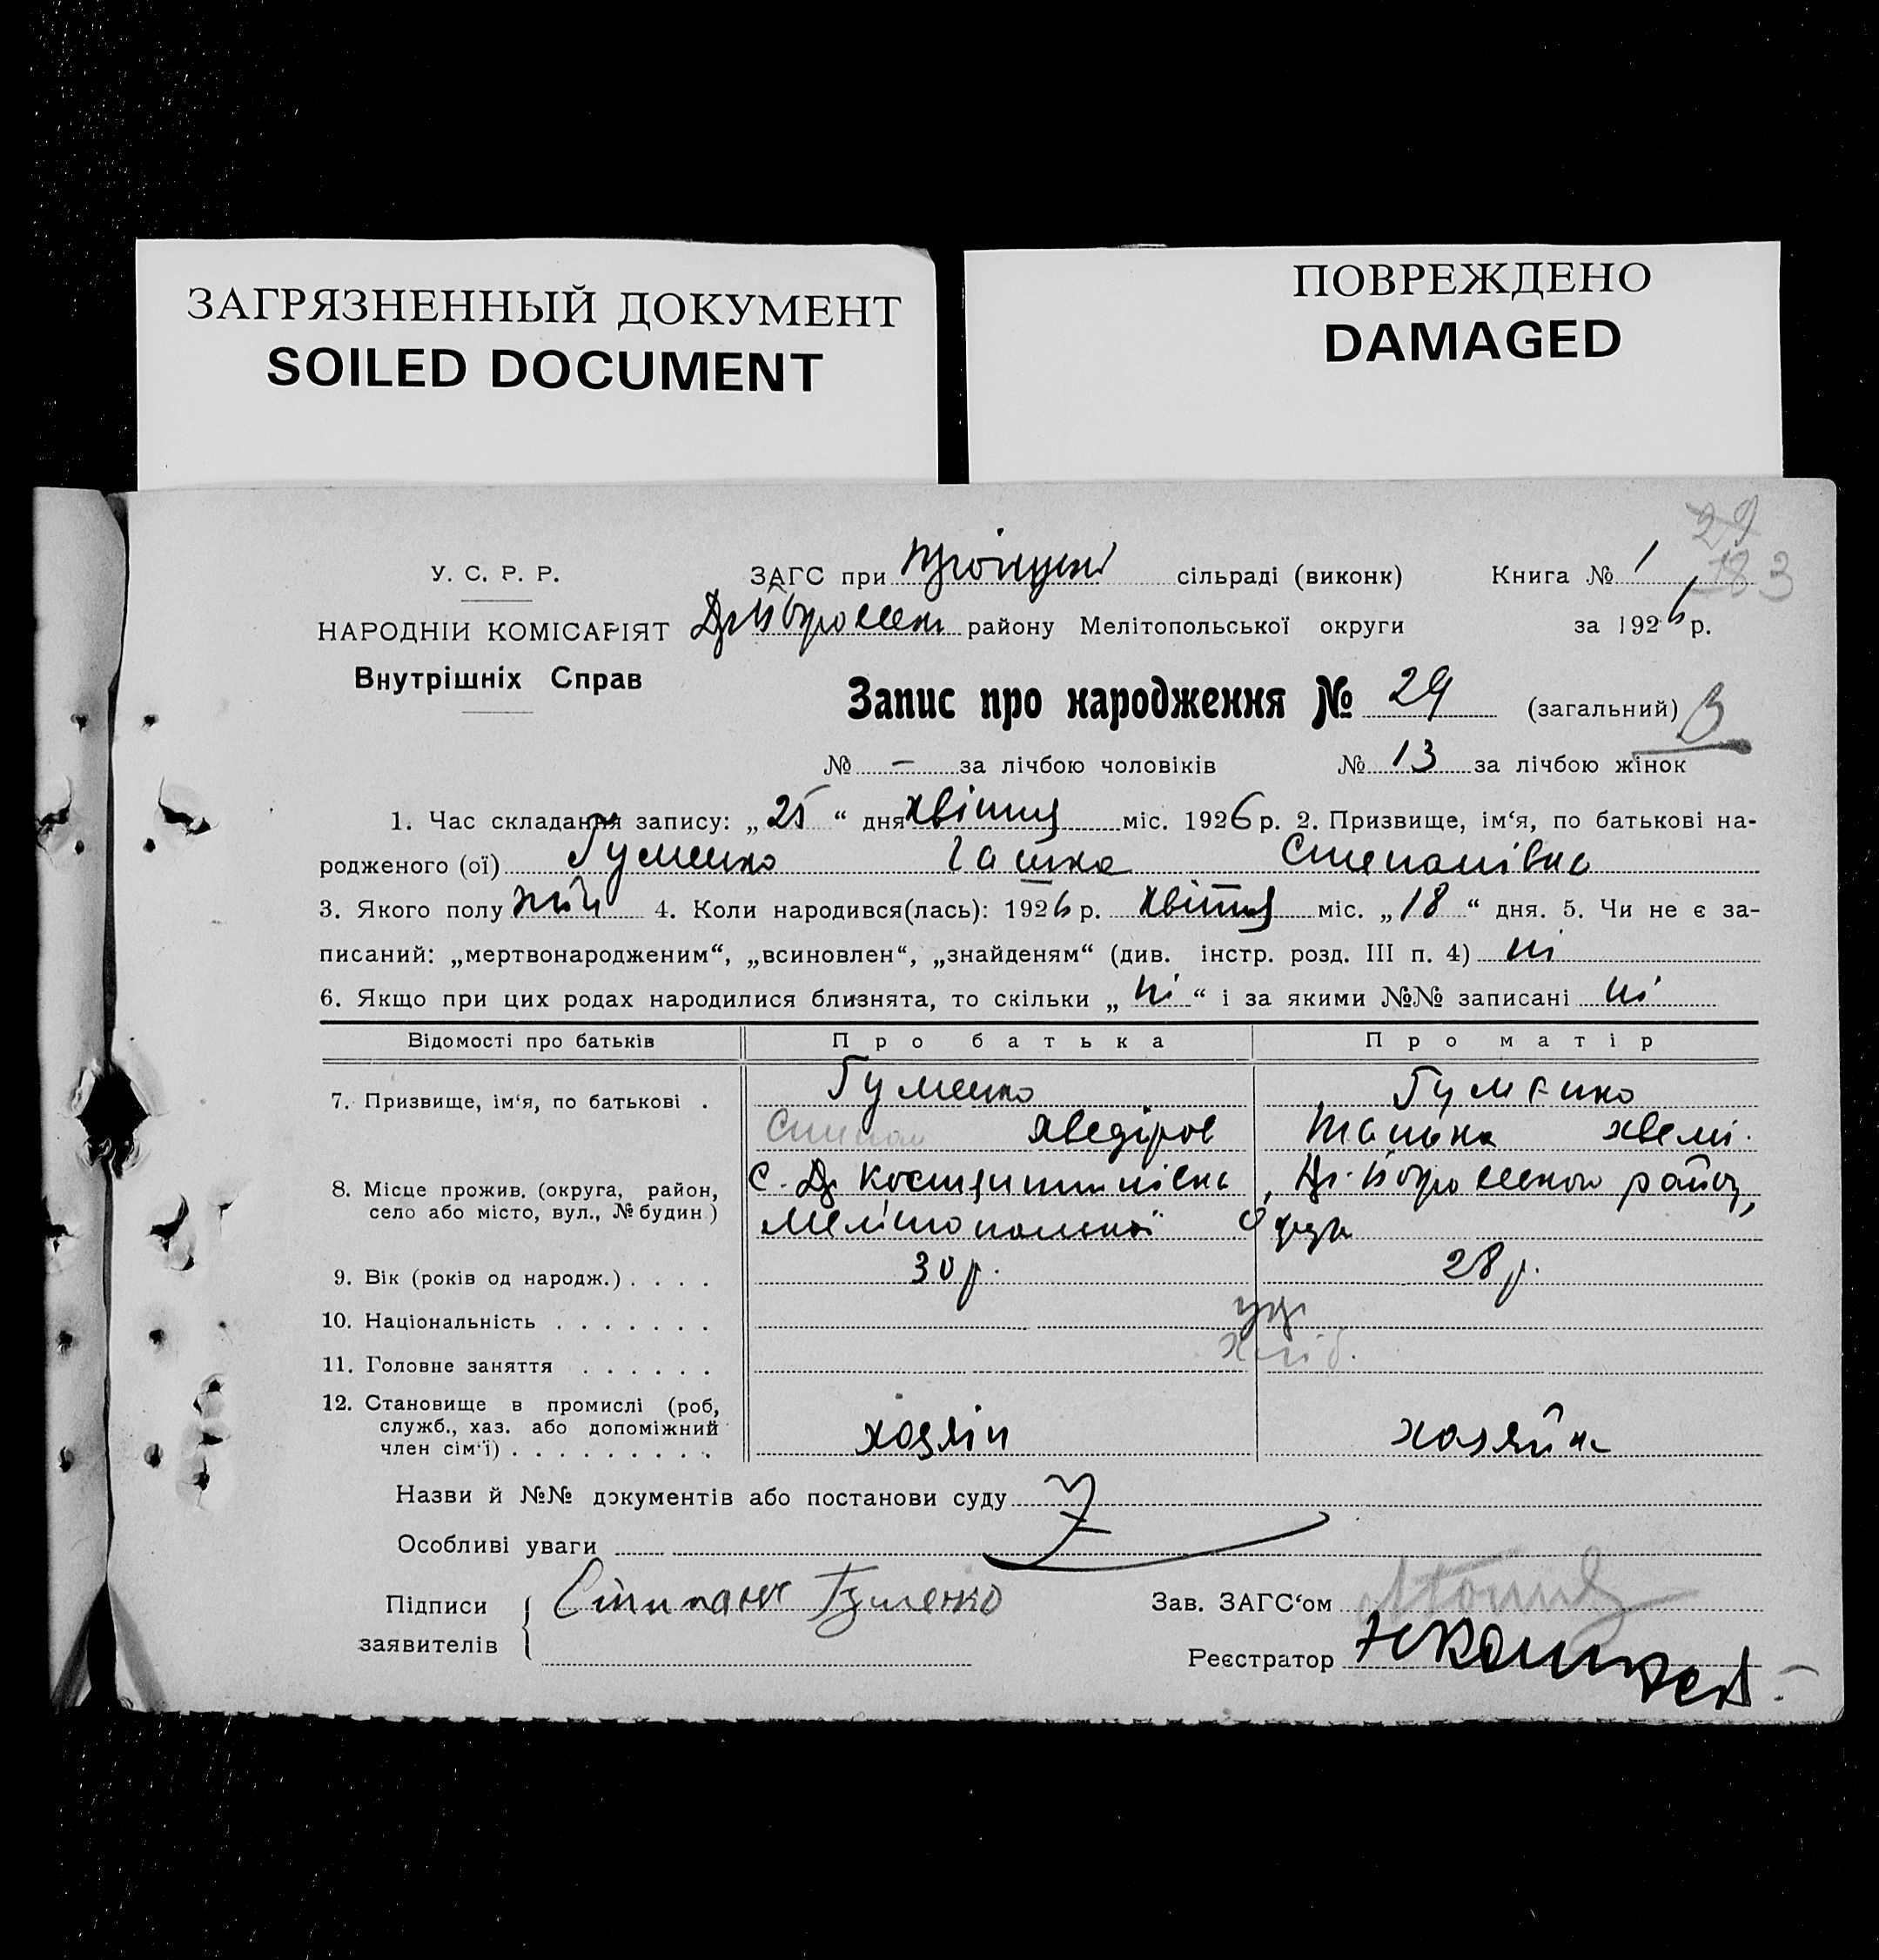 ЗАГРЯЗНЕННЫЙ ДОКУМЕНТ
SOILED DOCUMENT
ПОВРЕЖДЕНО
DAMAGED
29
183
У. С. Р. Р.
ЗАГС при сільраді (виконк) Книга № 1
НАРОДНІИ КОМІСАРІЯТ району Мелітопольської округи за 1926 р.
Внутрішніх Справ
Запис про народження № 29 (загальний)
№ – за лічбою чоловіків № 13 за лічбою жінок
1. Час складання запису: „25“ дня квітня міс. 1926 р. 2. Призвище, ім‘я, по батькові на-
родженого (ої) Гуменко Гашка Степанівна
3. Якого полу жін 4. Коли народився(лась): 1926 р. квітня міс. „18“ дня. 5. Чи не є за-
писаний: „мертвонародженим“, „всиновлен“, „знайденям“ (див. інстр. розд. III п. 4) ні
6. Якщо при цих родах народилися близнята, то скільки „ні“ і за якими №№ записані ні
Відомості про батьків Про батька Про матір
7. Призвище, ім‘я, по батькові . Гуменко Гуменко
Степан
8. Місце прожив. (округа, район,
село або місто, вул., № будин) Мелітопольскої
9. Вік (років од народж.) . . . . 30 р. 28 р.
10. Національність . . . . . . . укр
11. Головне заняття . . . . . . хліб.
12. Становище в промислі (роб,
служб., хаз. або допоміжний
член сім‘ї) . . . . . . . . . хозяін хозяйка
Назви й №№ документів або постанови суду
Особливі уваги
Підписи Гуменко
заявителів
Зав. ЗАГС‘ом
Реєстратор